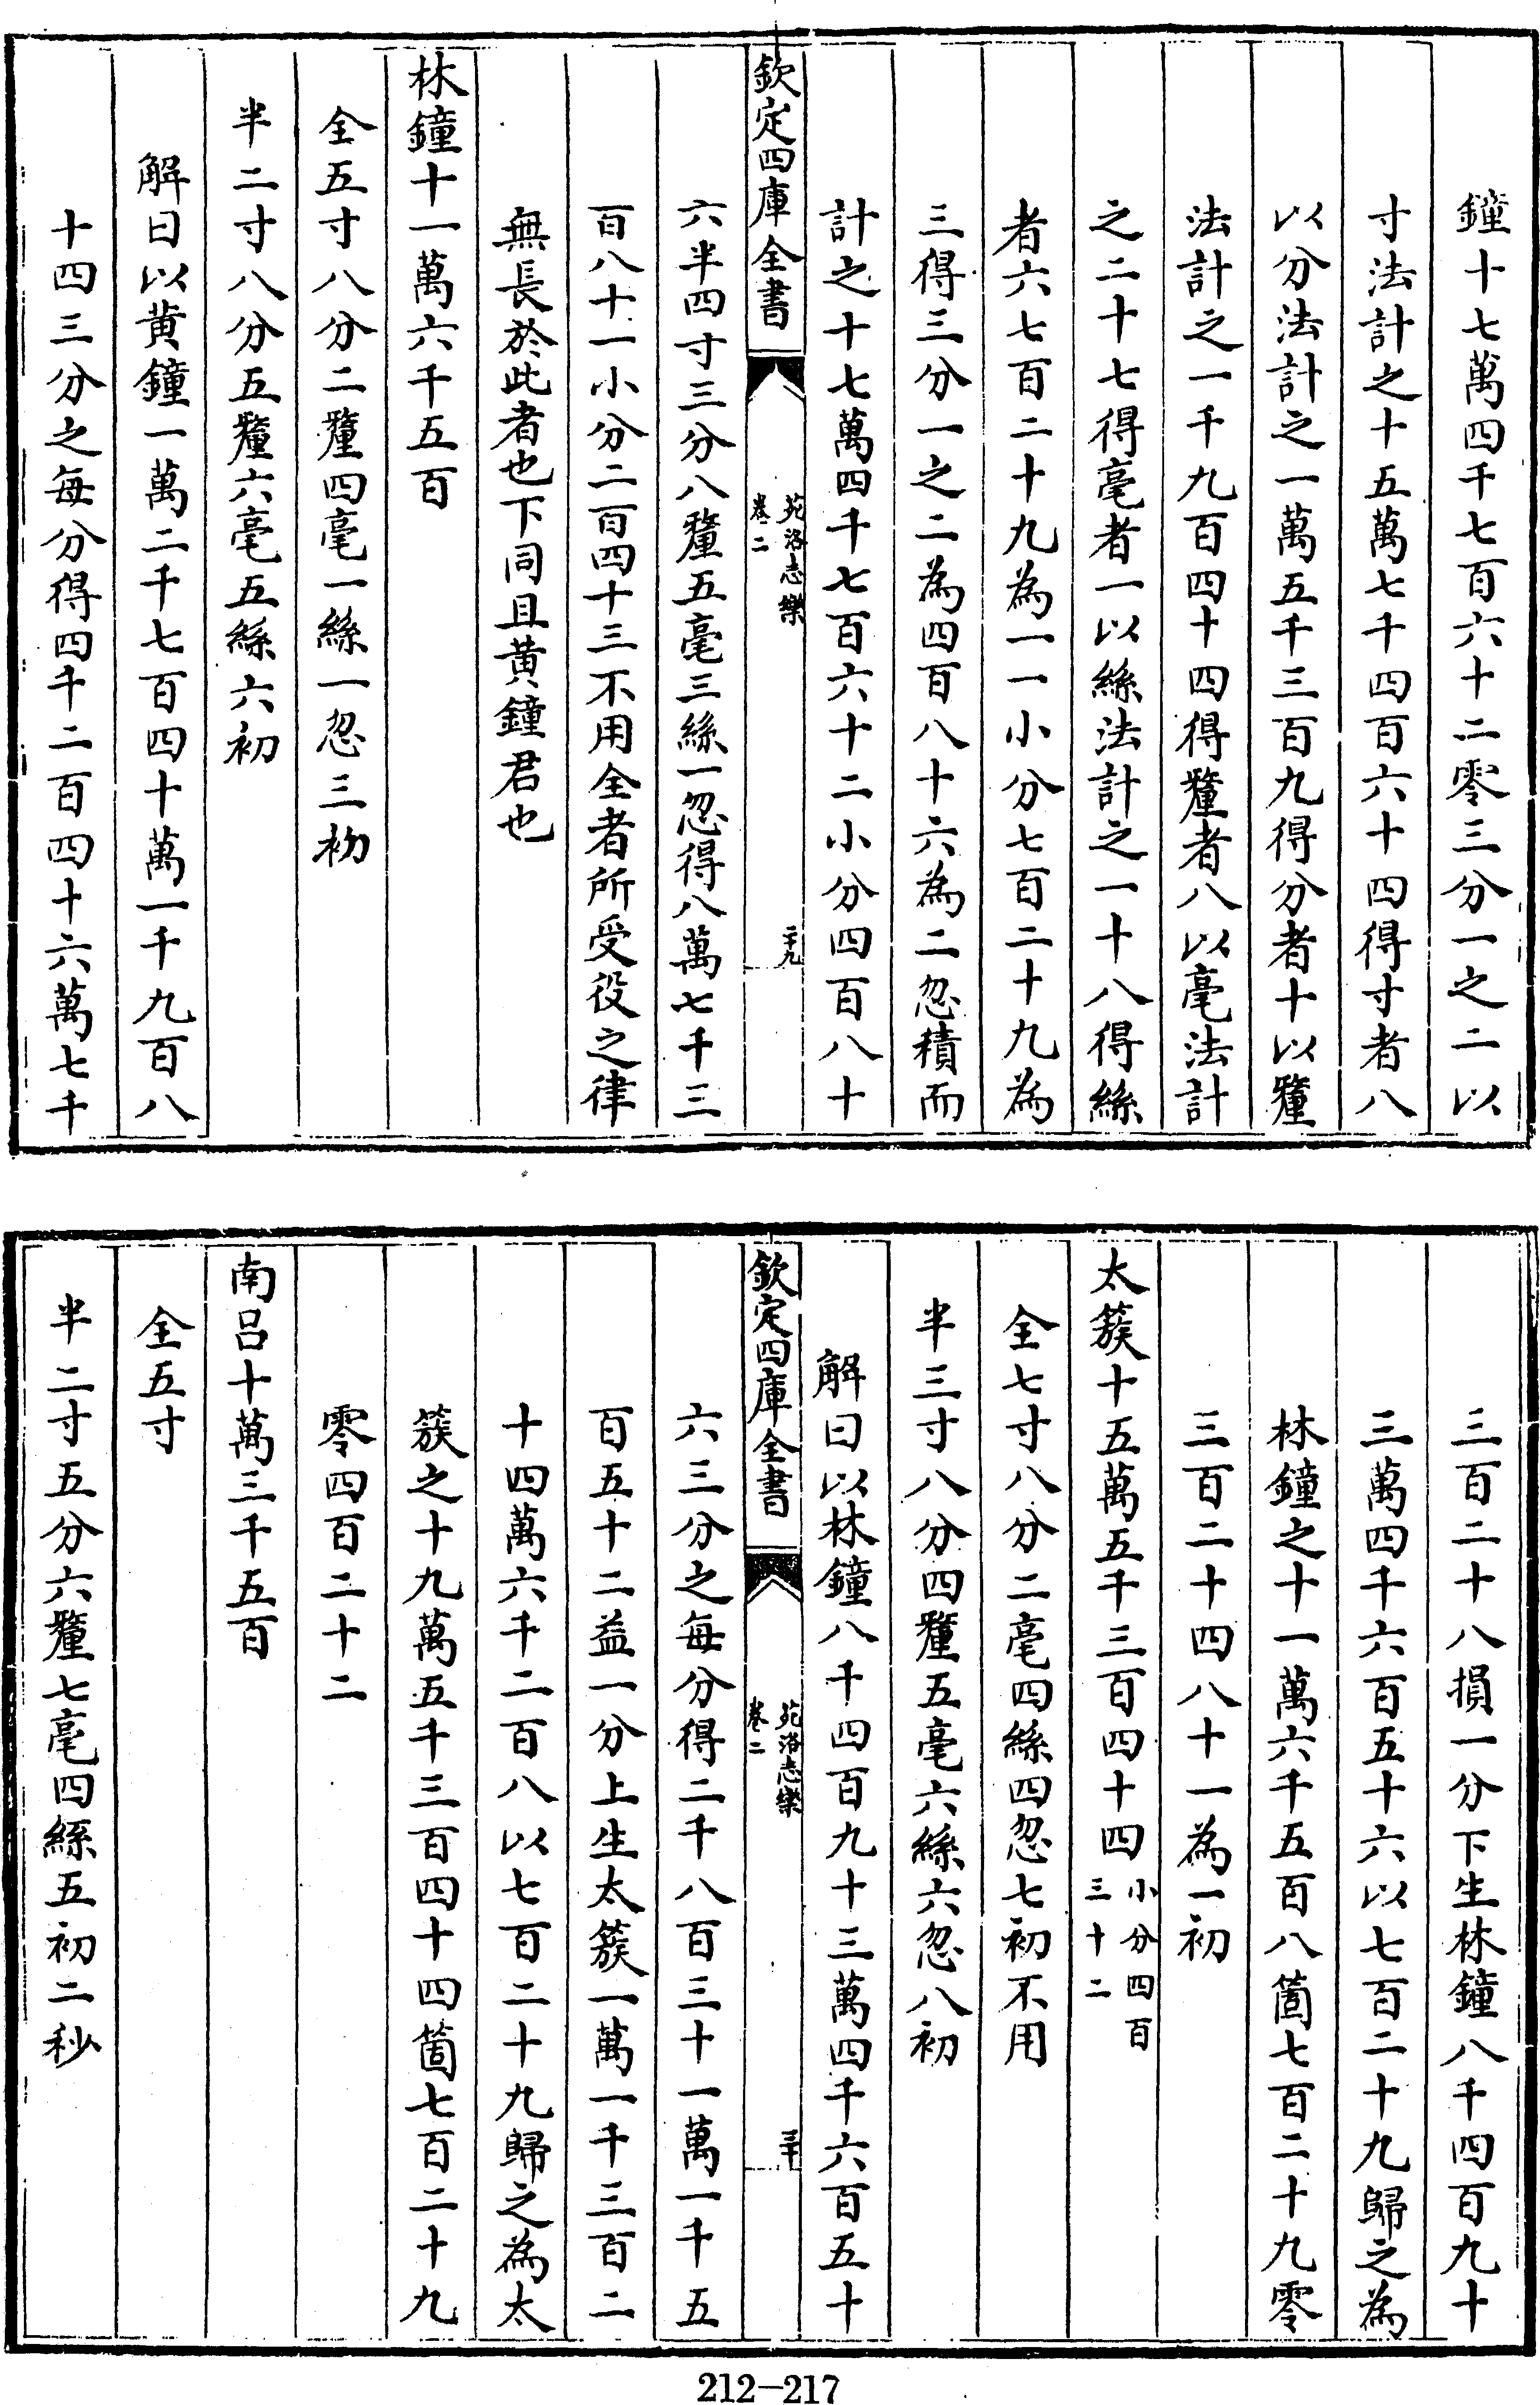 鐘十七萬四千七百六十二零三分一之二以
寸法計之十五萬七千四百六十四得寸者八
以分法計之一萬五千三百九得分者十以釐
法計之一千九百四十四得釐者八以毫法計
之二十七得毫者一以絲法計之一十八得絲
者六七百二十九為一一小分七百二十九為
三得三分一之二為四百八十六為二忽積而
計之十七萬四千七百六十二小分四百八十
欽定四庫全書
苑洛志樂
卷二
二十九
六半四寸三分八釐五毫三絲一忽得八萬七千三
百八十一小分二百四十三不用全者所受役之律
無長於此者也下同且黃鐘君也
林鐘十一萬六千五百
全五寸八分二釐四毫一絲一忽三初
半二寸八分五釐六毫五絲六初
解曰以黃鐘一萬二千七百四十萬一千九百八
十四三分之每分得四千二百四十六萬七千
三百二十八損一分下生林鐘八千四百九十
三萬四千六百五十六以七百二十九歸之為
林鐘之十一萬六千五百八箇七百二十九零
三百二十四八十一為一初
太簇十五萬五千三百四十四小分四百三十二
全七寸八分二毫四絲四忽七初不用
半三寸八分四釐五毫六絲六忽八初
解曰以林鐘八千四百九十三萬四千六百五十
欽定四庫全書
苑洛志樂
卷二
三十
六三分之每分得二千八百三十一萬一千五
百五十二益一分上生太簇一萬一千三百二
十四萬六千二百八以七百二十九歸之為太
簇之十九萬五千三百四十四箇七百二十九
零四百二十二
南呂十萬三千五百
全五寸
半二寸五分六釐七毫四絲五初二秒
212-217